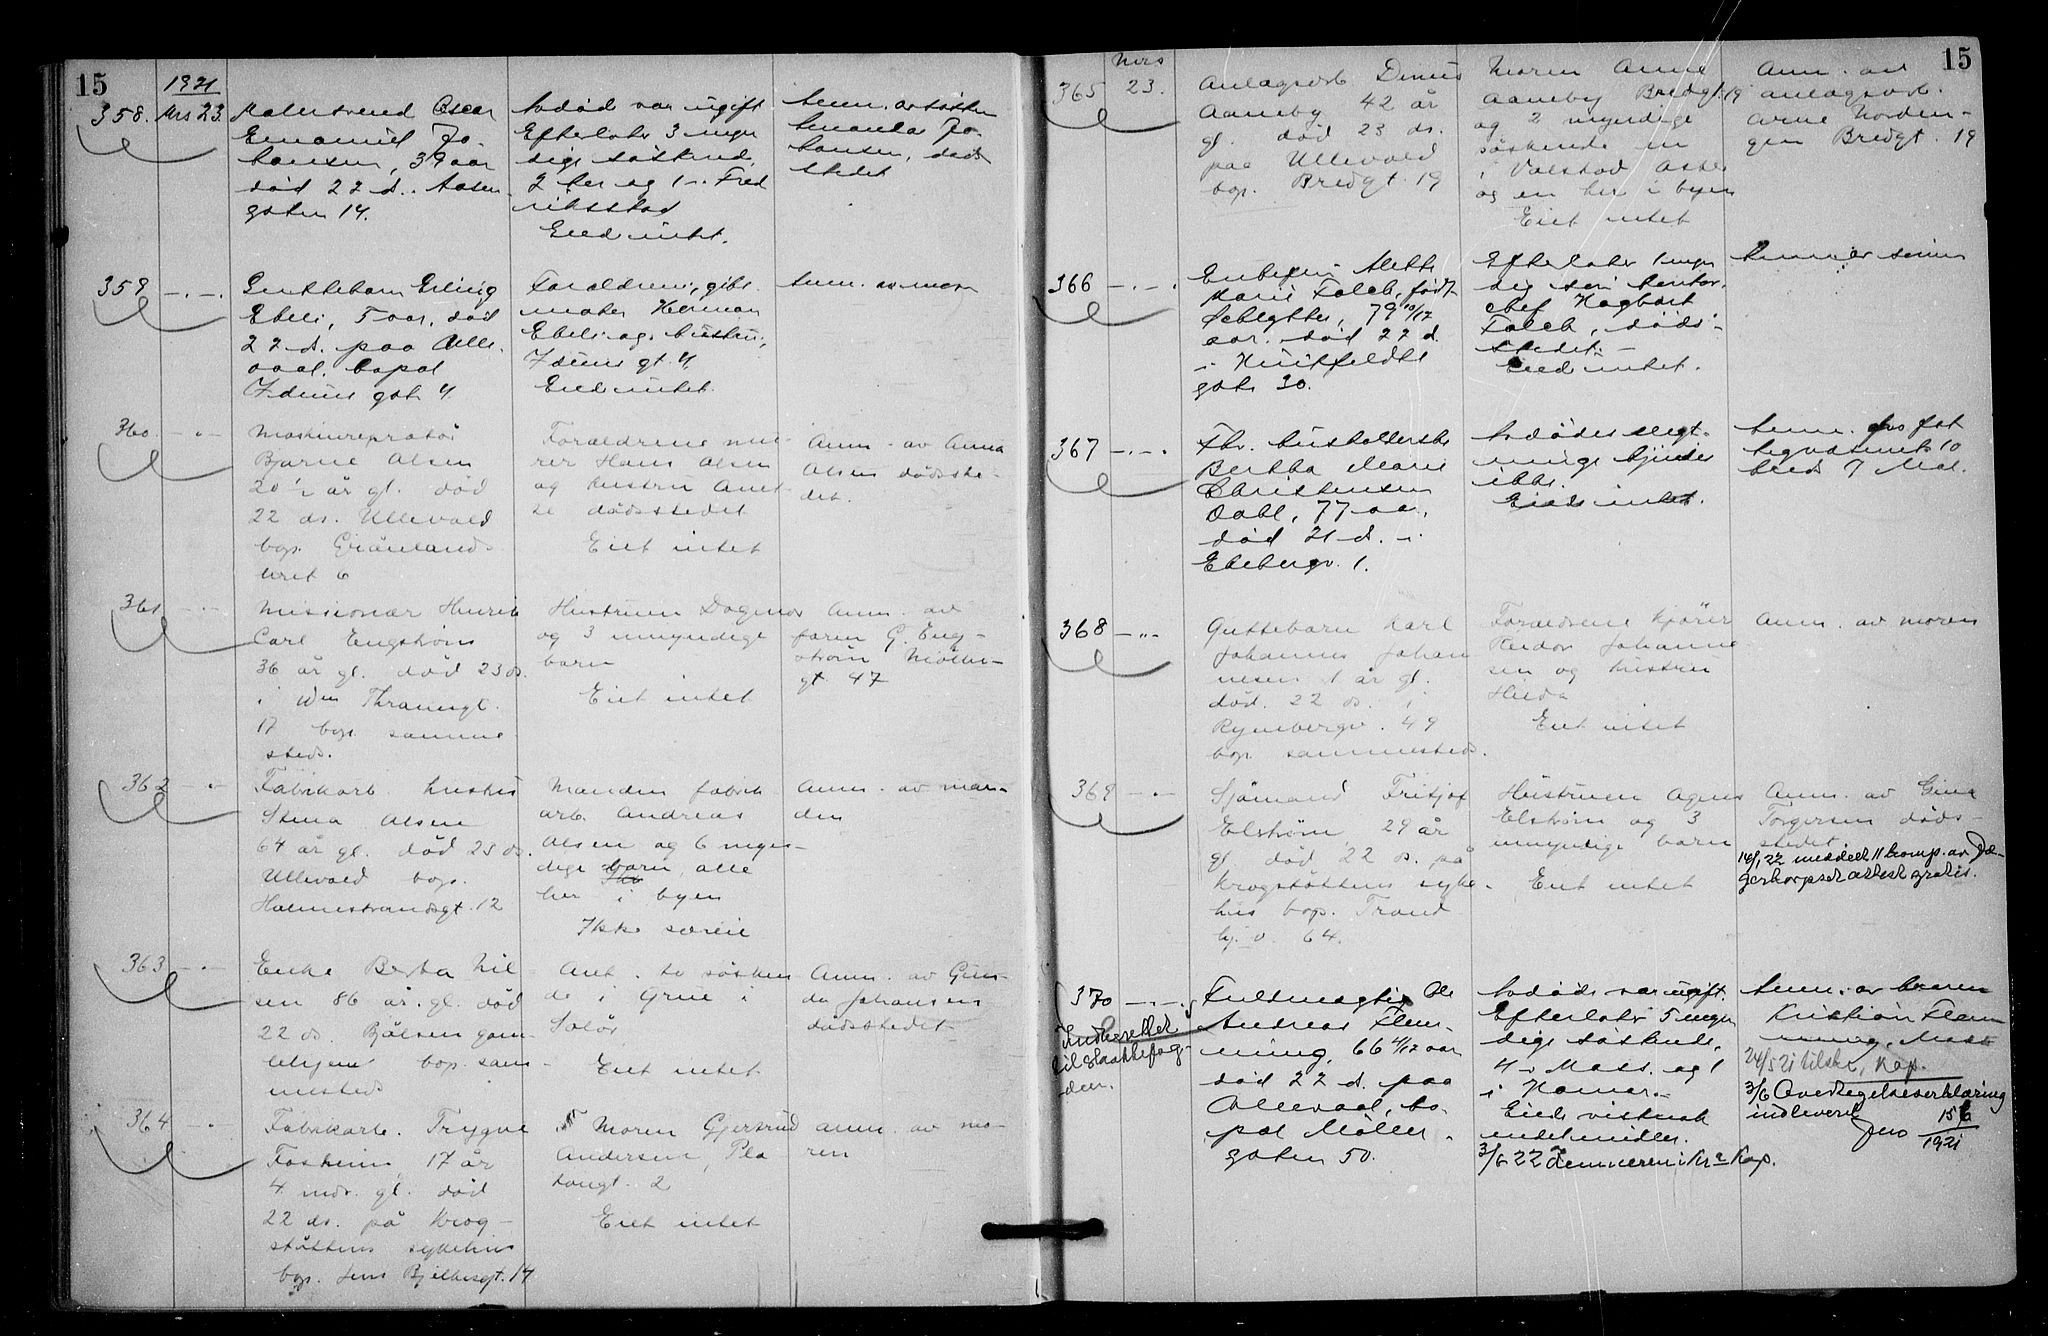 15
1921
358. Mrs 23. Malersvend Oscar
Emanuel Jo-
hansen, 39 aar
død 22 d. Aasen
gaten 14.
Avdøde var ugift
Efterlater 3 myn
dige søskend,
2 her og 1 i Fred
riksstad
Eied intet.
Anm. av søsteren
Amanda Jo-
hansen, døds
stedet
359 -.-. Guttebarn Erling
Ebeli, 5 aar, død
22 d. paa Ulle-
vaal. bopal
Idunsgat. 4.
Forældrene,
Herman
Ebeli og hustru,
Iduns gt. 4.
Eied intet.
Anm. av mor
360. -.- Maskinrepratør
Bjarne Olsen
20 1/2 år gl. død
22 ds. Ullevold
bop. Grønlands-
leret 6
Forældrene mu-
rer Hans Olsen
og hustru Anet-
te dødsstedet
Eiet intet
Anm. av Anna
Olsen dødsste-
det.
361 -.- Missionær Henrik
Carl Engstrøm
36 år gl. død 23 ds.
i Wm Thranesgt.
17 bop. samme
steds.
Hustruen Dagmar
og 3 umyndige
barn
Eiet intet
Anm. av
faren G. Eng-
strøm Møller-
gt. 47
362 -.- Fabrikarb. hustru
Stina Olsen
64 år gl. død 23 ds.
Ullevold bop.
Holmestrandsgt. 12
Manden fabrik
arb. Andreas
Olsen og 6 myn-
dige barn, alle
her i byen
Ikke særeie
Anm. av man-
den
363 -.- Enke Berta Nil
sen 86 år. gl. død
22 ds. Bjølsen gam-
lehjem bop. sam-
mesteds
Ant. to søsken
de i Grue i
Solør
Eiet intet
Anm. av Gun-
da Johansen
dødsstedet
364 -.- Fabrikarb. Trygve
Fosheim 17 år
4 mdr. gl. død
22 ds. på Krog-
støttens sykehus
bop. Jens Bjelkesgt. 14
Moren Gjertrud
Andersen, Pla
tousgt. 2
Eiet intet
anm. av mo-
ren
15
Mrs
365 23. Anlagsarb Dinus
Aameby 42 år
gl. død 23 ds.
paa Ullevold
bop. Bredgt. 19
Moren Anne
Aameby Bredgt. 19
og 2 myndige
søskende en
i Valstad Asker
og en her i byen
Eiet intet
Anm. av
anlagsarb.
Arne Norden-
gen Bredgt. 19
366 -.-. Enkefru Alette
Marie Falch, født
79 10/12
aar. død 22 d.
i Huitfeldts
gate 30.
Efterlater 1 myn
dig søn kontor
chef Hagbart
Falch, døds-
stedet.
Eied intet.
Anm. av sønnen
367 -.-. Fhv. husholderske
Bertha Marie
Christensen
Dahl, 77 aar,
død 21 d. i
Ekebergv. 1.
Avdødes slegt-
ninge kjendes
ikke.
Eied intet.
Anm. fra fat
tigvæsenets 10
kreds
368 -.- Guttebarn Karl
Johannes Johan
nesen 1 år gl.
død. 22 ds. i
Rymbergv. 49
bop. sammesteds.
Forældrene kjører
Reidar Johanne
sen og hustru
Hilda
Eiet intet
Anm. av moren
369 -.- Sjømand Fritjof
Elstrøm 29 år
gl. død 22 ds. på
Krogstøttens syke-
hus bop. Trond
hj. v. 64.
Hustruen Agnes
Elstrøm og 3
umyndige barn
Eiet intet
Anm. av Gina
Torgersen døds-
stedet
14/1 22 meddelt 11 komp. av Jæ-
gerkorpset attest gratis.
370 -.-. Fuldmægtig Ole
Andreas Flem-
ming, 66 4/12 aar
død 22 d. paa
Ullevaal, bo-
pal Møller-
gaten 50.
Indberettet
til Skattefog-
den.
Avdøde var ugift.
Efterlater 5 myn
dige søskende,
4 i Moss. og 1
i Hamar.
Eied vistnok
endel midler.
3/6 22 i Kra Kap.
Anm. av broren
Kristian Flem
ming, Moss
24/5 21 tilst. Kap.
3/6 Overtagelseserklæring
indlevert
15/6
1921